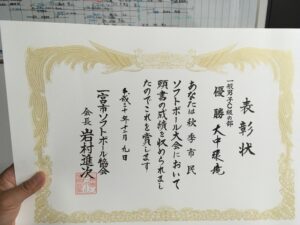 表彰状
一般男子C級の部
優勝 大中環境
あなたは秋季市民
ソフトボール大会において
頭書の成績を収められまし
たのでこれを賞します
平成二十年十一月九日
一宮市ソフトボール協会
会長 岩村進次